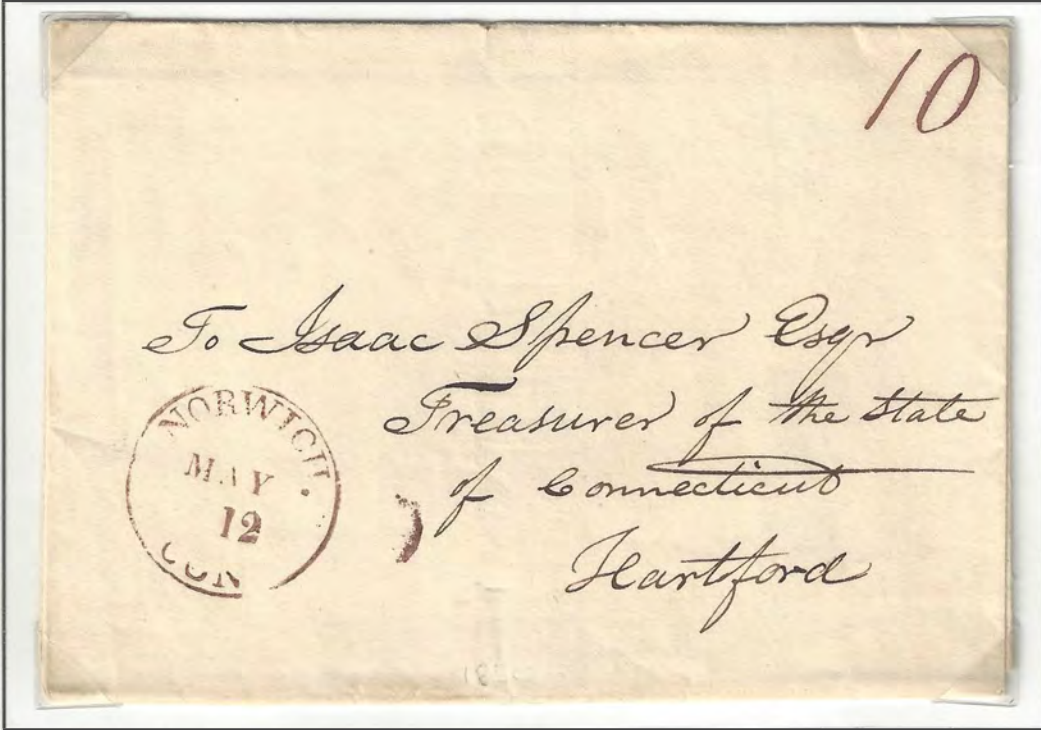 10
To Isaac Spencer Esqr
Treasurer of the State
of Connecticut
Hartford
NORWICH.
MAY
12
CON